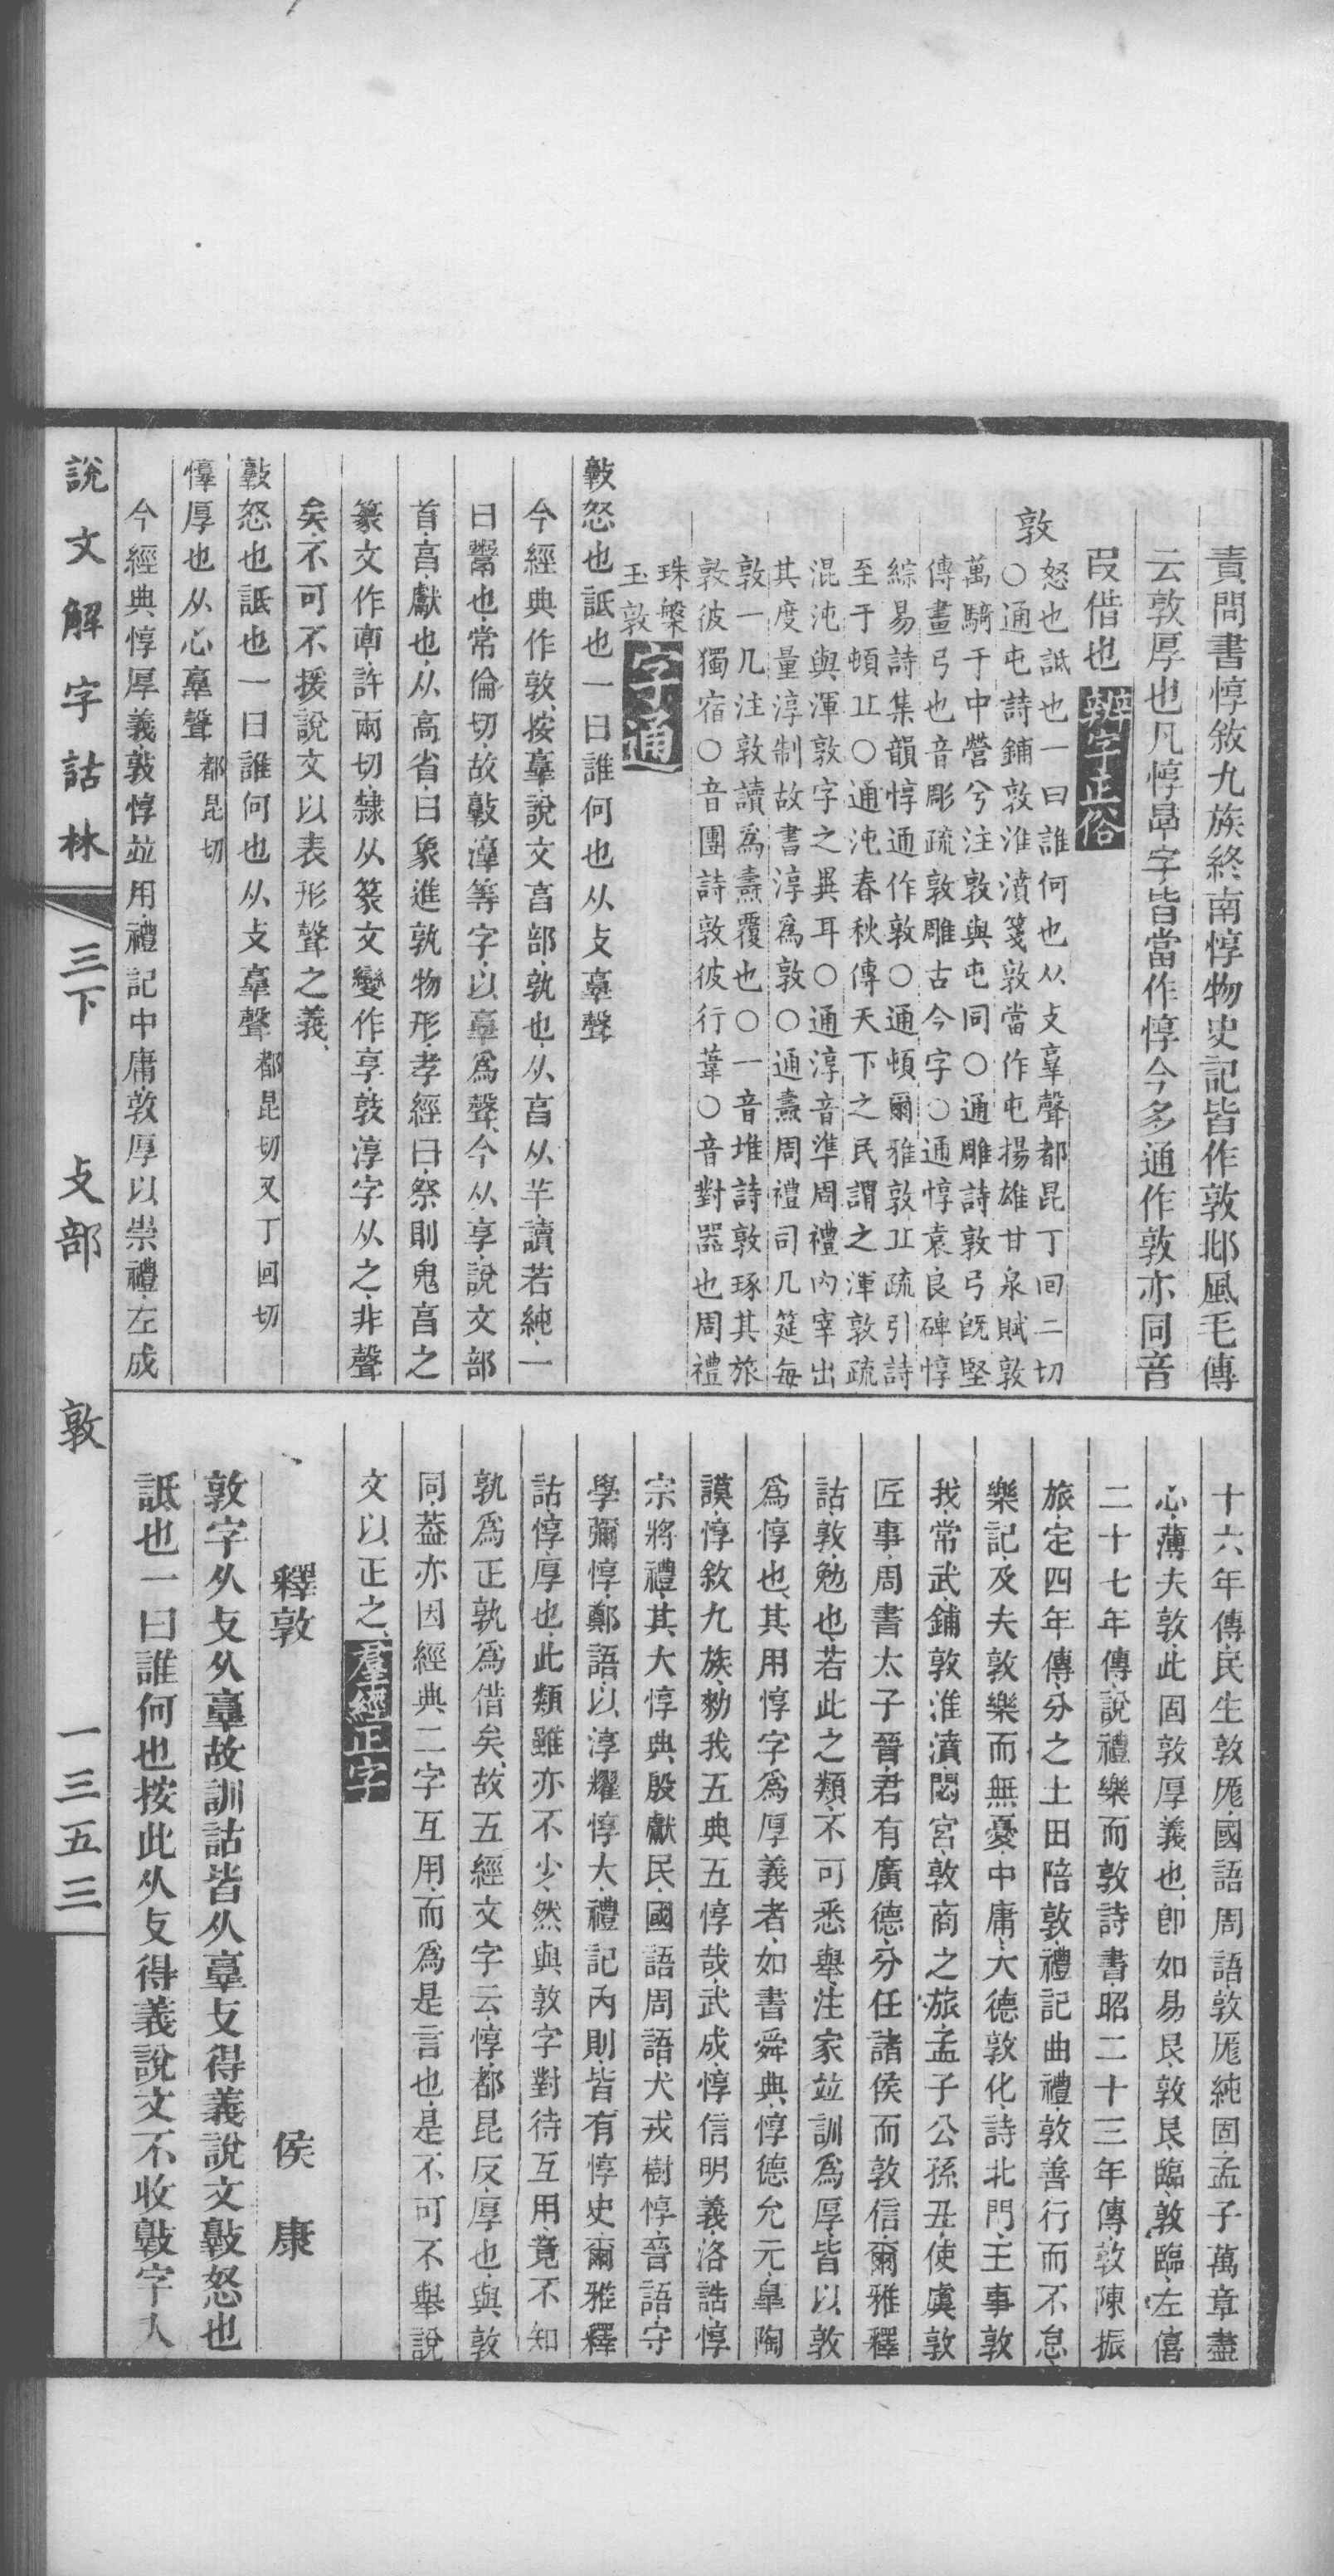 責問書惇敘九族終南惇物史記皆作敦邶風毛傳
云敦厚也凡惇𦤶字皆當作惇今多通作敦亦同音
叚借也辨字正俗
敦
怒也詆也一曰誰何也从攴𦎫聲都昆丁回二切
○通屯詩鋪敦淮濆箋敦當作屯揚雄甘泉賦敦
萬騎于中營兮注敦與屯同○通雕詩敦弓旣堅
傳畫弓也音彫疏敦雕古今字○通惇袁良碑惇
綜易詩集韻惇通作敦○通頓爾雅敦丠疏引詩
至于頓丠○通沌春秋傳天下之民謂之渾敦疏
混沌與渾敦字之異耳○通淳音準周禮內宰出
其度量淳制故書淳爲敦○通燾周禮司几筵每
敦一几注敦讀爲燾覆也○一音堆詩敦琢其旅
敦彼獨宿○音團詩敦彼行葦○音對器也周禮
珠槃
玉敦
字通
𢾭怒也詆也一曰誰何也从攴𦎫聲
今經典作敦按𦎫說文亯部孰也从亯从羊讀若純一
曰鬻也常倫切故𢾭漳等字以𦎫爲聲今从享說文部
首亯獻也从高省曰象進孰物形孝經曰祭則鬼亯之
篆文作𠅠許兩切隸从篆文變作享敦淳字从之非聲
矣不可不援說文以表形聲之義
𢾭怒也詆也一曰誰何也从攴𦎫聲都昆切又丁回切
惇厚也从心𦎫聲都昆切
今經典惇厚義敦惇竝用禮記中庸敦厚以崇禮左成
十六年傳民生敦厖國語周語敦厖純固孟子萬章盡
心薄夫敦此固敦厚義也卽如易艮敦艮臨敦臨左僖
二十七年傳說禮樂而敦詩書昭二十三年傳敦陳振
旅定四年傳分之土田陪敦禮記曲禮敦善行而不怠
樂記及夫敦樂而無憂中庸大德敦化詩北門王事敦
我常武鋪敦淮濆閟宮敦商之旅孟子公孫丑使虞敦
匠事周書太子晉君有廣德分任諸侯而敦信爾雅釋
詁敦勉也若此之類不可悉舉注家竝訓爲厚皆以敦
爲惇也其用惇字爲厚義者如書舜典惇德允元皐陶
謨惇敘九族勑我五典五惇哉武成惇信明義洛誥惇
宗將禮其大惇典殷獻民國語周語犬戎樹惇晉語守
學彌惇鄭語以淳耀惇大禮記內則皆有惇史爾雅釋
詁惇厚也此類雖亦不少然與敦字對待互用竟不知
孰爲正孰爲借矣故五經文字云惇都昆反厚也與敦
同葢亦因經典二字互用而爲是言也是不可不舉說
文以正之羣經正字
釋敦　侯康
敦字从攴从𦎫故訓詁皆从𦎫攴得義說文𢾭怒也
詆也一曰誰何也按此从攴得義說文不收敦字人
說文解字詁林　三下　攴部　敦　一三五三